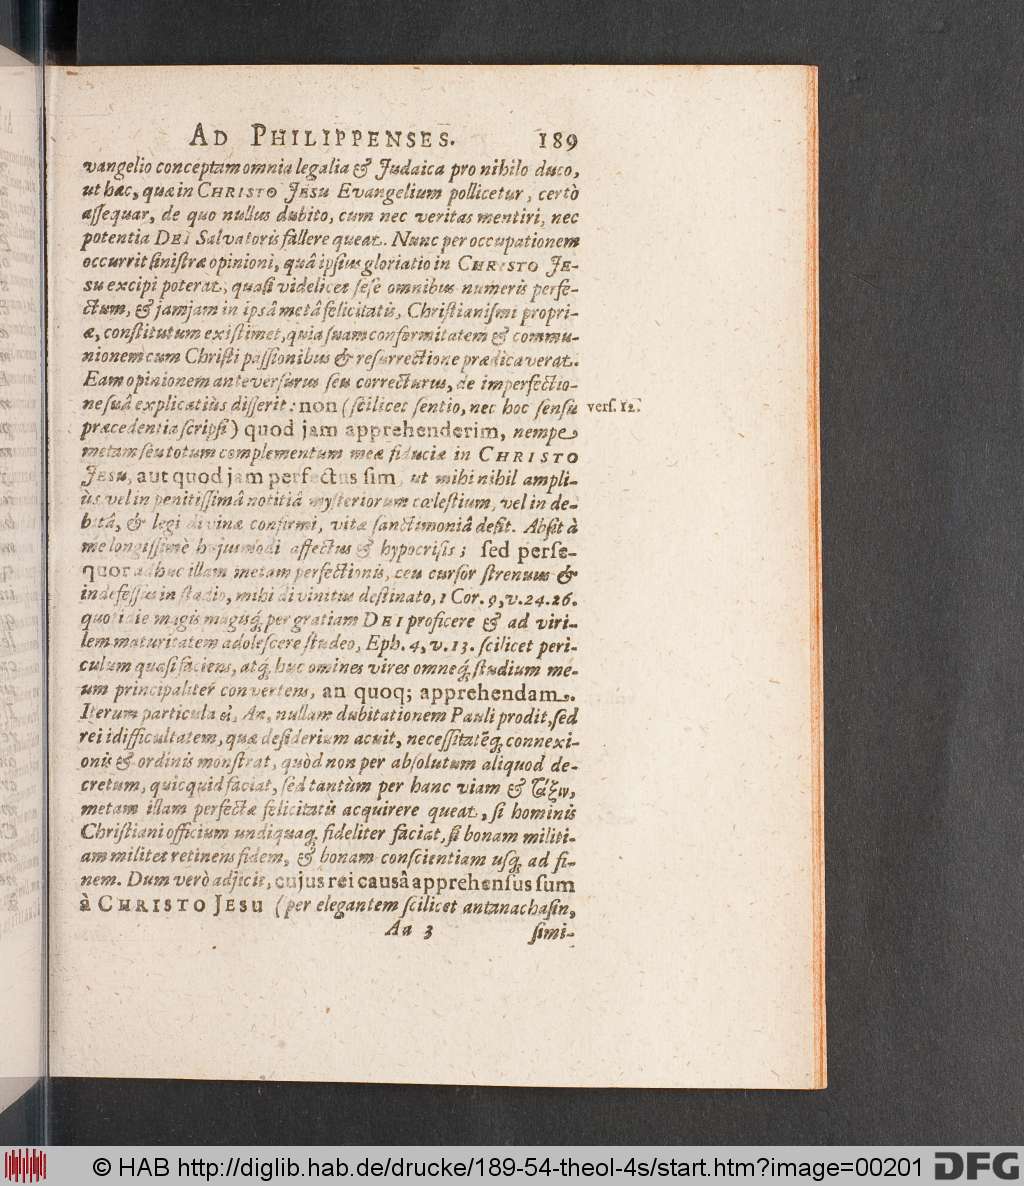 AD PHILIPPENSES. 189
vangelio conceptam omnia legalia & Judaica pro nihilo duco,
ut hæc, quæ in CHRISTO JESU Evangelium pollicetur, certò
aſſequar, de quo nullus dubito, cum nec veritas mentiri, nec
potentia DEI Salvatoris fallere queat. Nunc per occupationem
occurrit ſiniſtræ opinioni, quâ ipſius gloriatio in CHRISTO JE-
SU excipi poterat, quaſi videlicet ſeſe omnibus numeris perfe-
ctum, & jamjam in ipsâ metâ felicitatis, Chriſtianiſmi propri-
æ, conſtitutum exiſtimet, quia ſuam conformitatem & commu-
nionem cum Chriſti paſſionibus & reſurrectione prædicaverat.
Eam opinionem anteverſurus ſeu correcturus, de imperfectio-
ne ſuâ explicatiùs diſſerit: non (ſcilicet ſentio, nec hoc ſenſu verſ. 12.
præcedentia ſcripſi) quod jam apprehenderim, nempe
metam ſeu totum complementum meæ fiduciæ in CHRISTO
JESU, aut quod jam perfectus ſim, ut mihi nihil ampli-
ùs vel in penitiſſimâ notitiâ myſteriorum cœleſtium, vel in de-
bitâ, & legi divinæ confirmi, vitæ ſanctimoniâ deſit. Abſit à
me longiſſimè hujusmodi affectus & hypocriſis; ſed perſe-
quor adhuc illam metam perfectionis, ceu curſor ſtrenuus &
indefeſſus in ſtadio, mihi divinitus deſtinato, 1 Cor. 9, v. 24. 26.
quotidie magis magisq; per gratiam DEI proficere & ad viri-
lem maturitatem adoleſcere ſtudeo, Eph. 4, v. 13. ſcilicet peri-
culum quaſi faciens, atq; huc omines vires omneq; ſtudium me-
um principaliter convertens, an quoq; apprehendam.
Iterum particula εἰ, An, nullam dubitationem Pauli prodit, ſed
rei difficultatem, quæ deſiderium acuit, neceſſitatēq; connexi-
onis & ordinis monſtrat, quòd non per abſolutum aliquod de-
cretum, quicquid faciat, ſed tantùm per hanc viam & τάξιν,
metam illam perfectæ felicitatis acquirere queat, ſi hominis
Chriſtiani officium undiquaq; fideliter faciat, ſi bonam militi-
am militet retinens fidem, & bonam conſcientiam uſq; ad fi-
nem. Dum verò adjicit, cujus rei causâ apprehenſus ſum
à CHRISTO JESU (per elegantem ſcilicet antanachaſin,
Aa 3 ſimi-
© HAB http://diglib.hab.de/drucke/189-54-theol-4s/start.htm?image=00201 DFG